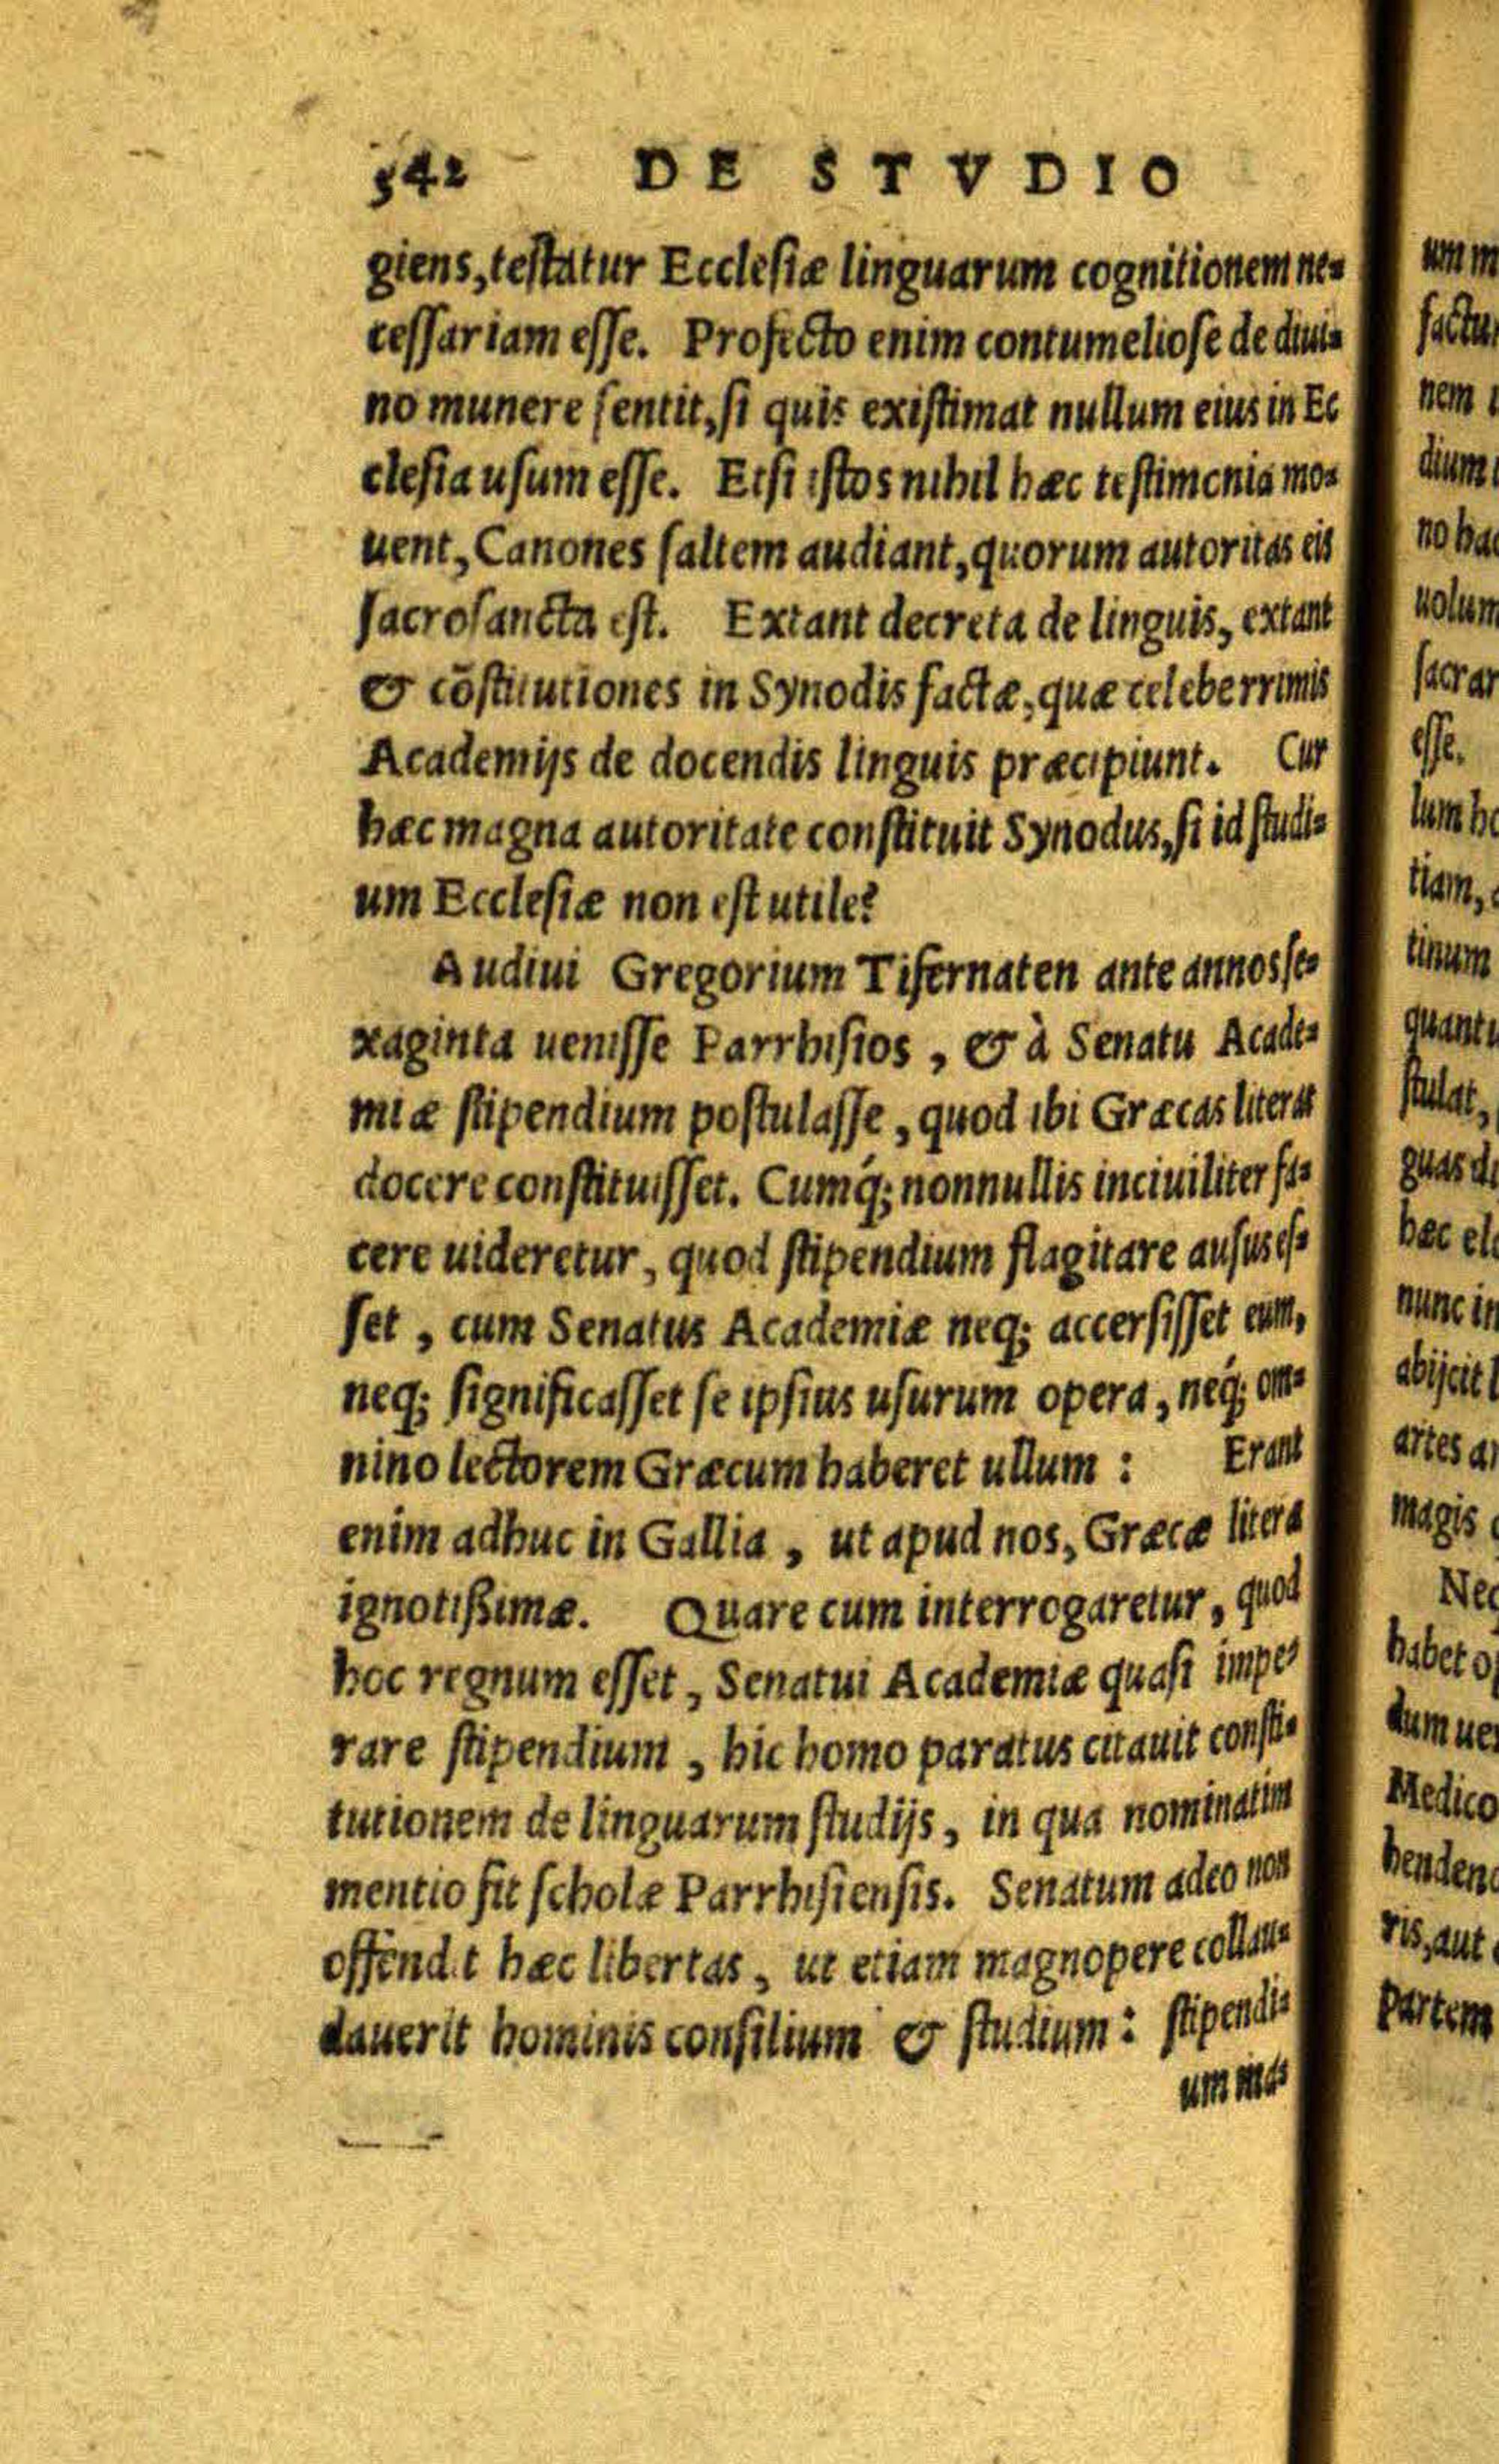 542 DE STVDIO
giens, testatur Ecclesiæ linguarum cognitionem ne-
cessariam esse. Profecto enim contumeliose de diui-
no munere sentit, si quis existimat nullum eius in Ec
clesia usum esse. Etsi istos nihil hæc testimonia mo-
uent, Canones saltem audiant, quorum autoritas eis
sacrosancta est. Extant decreta de linguis, extant
& cōstitutiones in Synodis factæ, quæ celeberrimis
Academijs de docendis linguis præcipiunt. Cur
hæc magna autoritate constituit Synodus, si id studi-
um Ecclesiæ non est utile?
Audiui Gregorium Tifernaten ante annos se-
xaginta uenisse Parrhisios, & à Senatu Acade-
miæ stipendium postulasse, quod ibi Græcas literas
docere constituisset. Cumq́; nonnullis inciuiliter fa-
cere uideretur, quod stipendium flagitare ausus es-
set, cum Senatus Academiæ neq; accersisset eum,
neq; significasset se ipsius usurum opera, neq́; om-
nino lectorem Græcum haberet ullum: Erant
enim adhuc in Gallia, ut apud nos, Græcæ literæ
ignotißimæ. Quare cum interrogaretur, quod
hoc regnum esset, Senatui Academiæ quasi impe-
rare stipendium, hic homo paratus citauit consti-
tutionem de linguarum studijs, in qua nominatim
mentio fit scholæ Parrhisiensis. Senatum adeo non
offendit hæc libertas, ut etiam magnopere collau-
dauerit hominis consilium & studium: stipendi-
um ma-
um m
factu
nem
dium
no hac
uolum
sacrar
esse.
lum
tiam,
tinum
quant
stulat,
guas d
hæc el
nunc in
abijcit
artes a
magis
Nec
habet o
dum ue
Medico
henden
ris, aut
partem